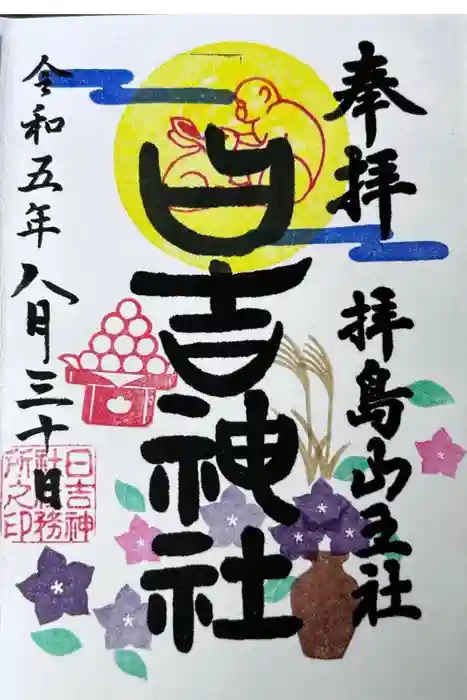 奉拝
拝島山王社
日吉神社
令和五年八月三十日
日吉神
社社務
所之印